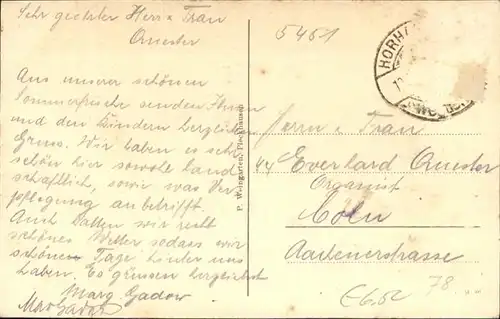 Sehr geehrter Herr u Frau
Quester
Aus unserer schönen
Sommerfrische senden Ihnen
und den Kindern herzlichen
Gruss. Wir haben es sehr
schön hier sowohl land
schaftlich, sowie was Ver
pflegung anbetrifft.
Auch hatten wir recht
schönes Wetter sodass wir
schöne Tage hinter uns
haben. Es grüssen herzlichst
Marg. Gadow
Max Gadow
P. Weingarten,
5461
HORH
Herrn u Frau
Everhard Quester
Organist
Cöln
Aachenerstrasse
78